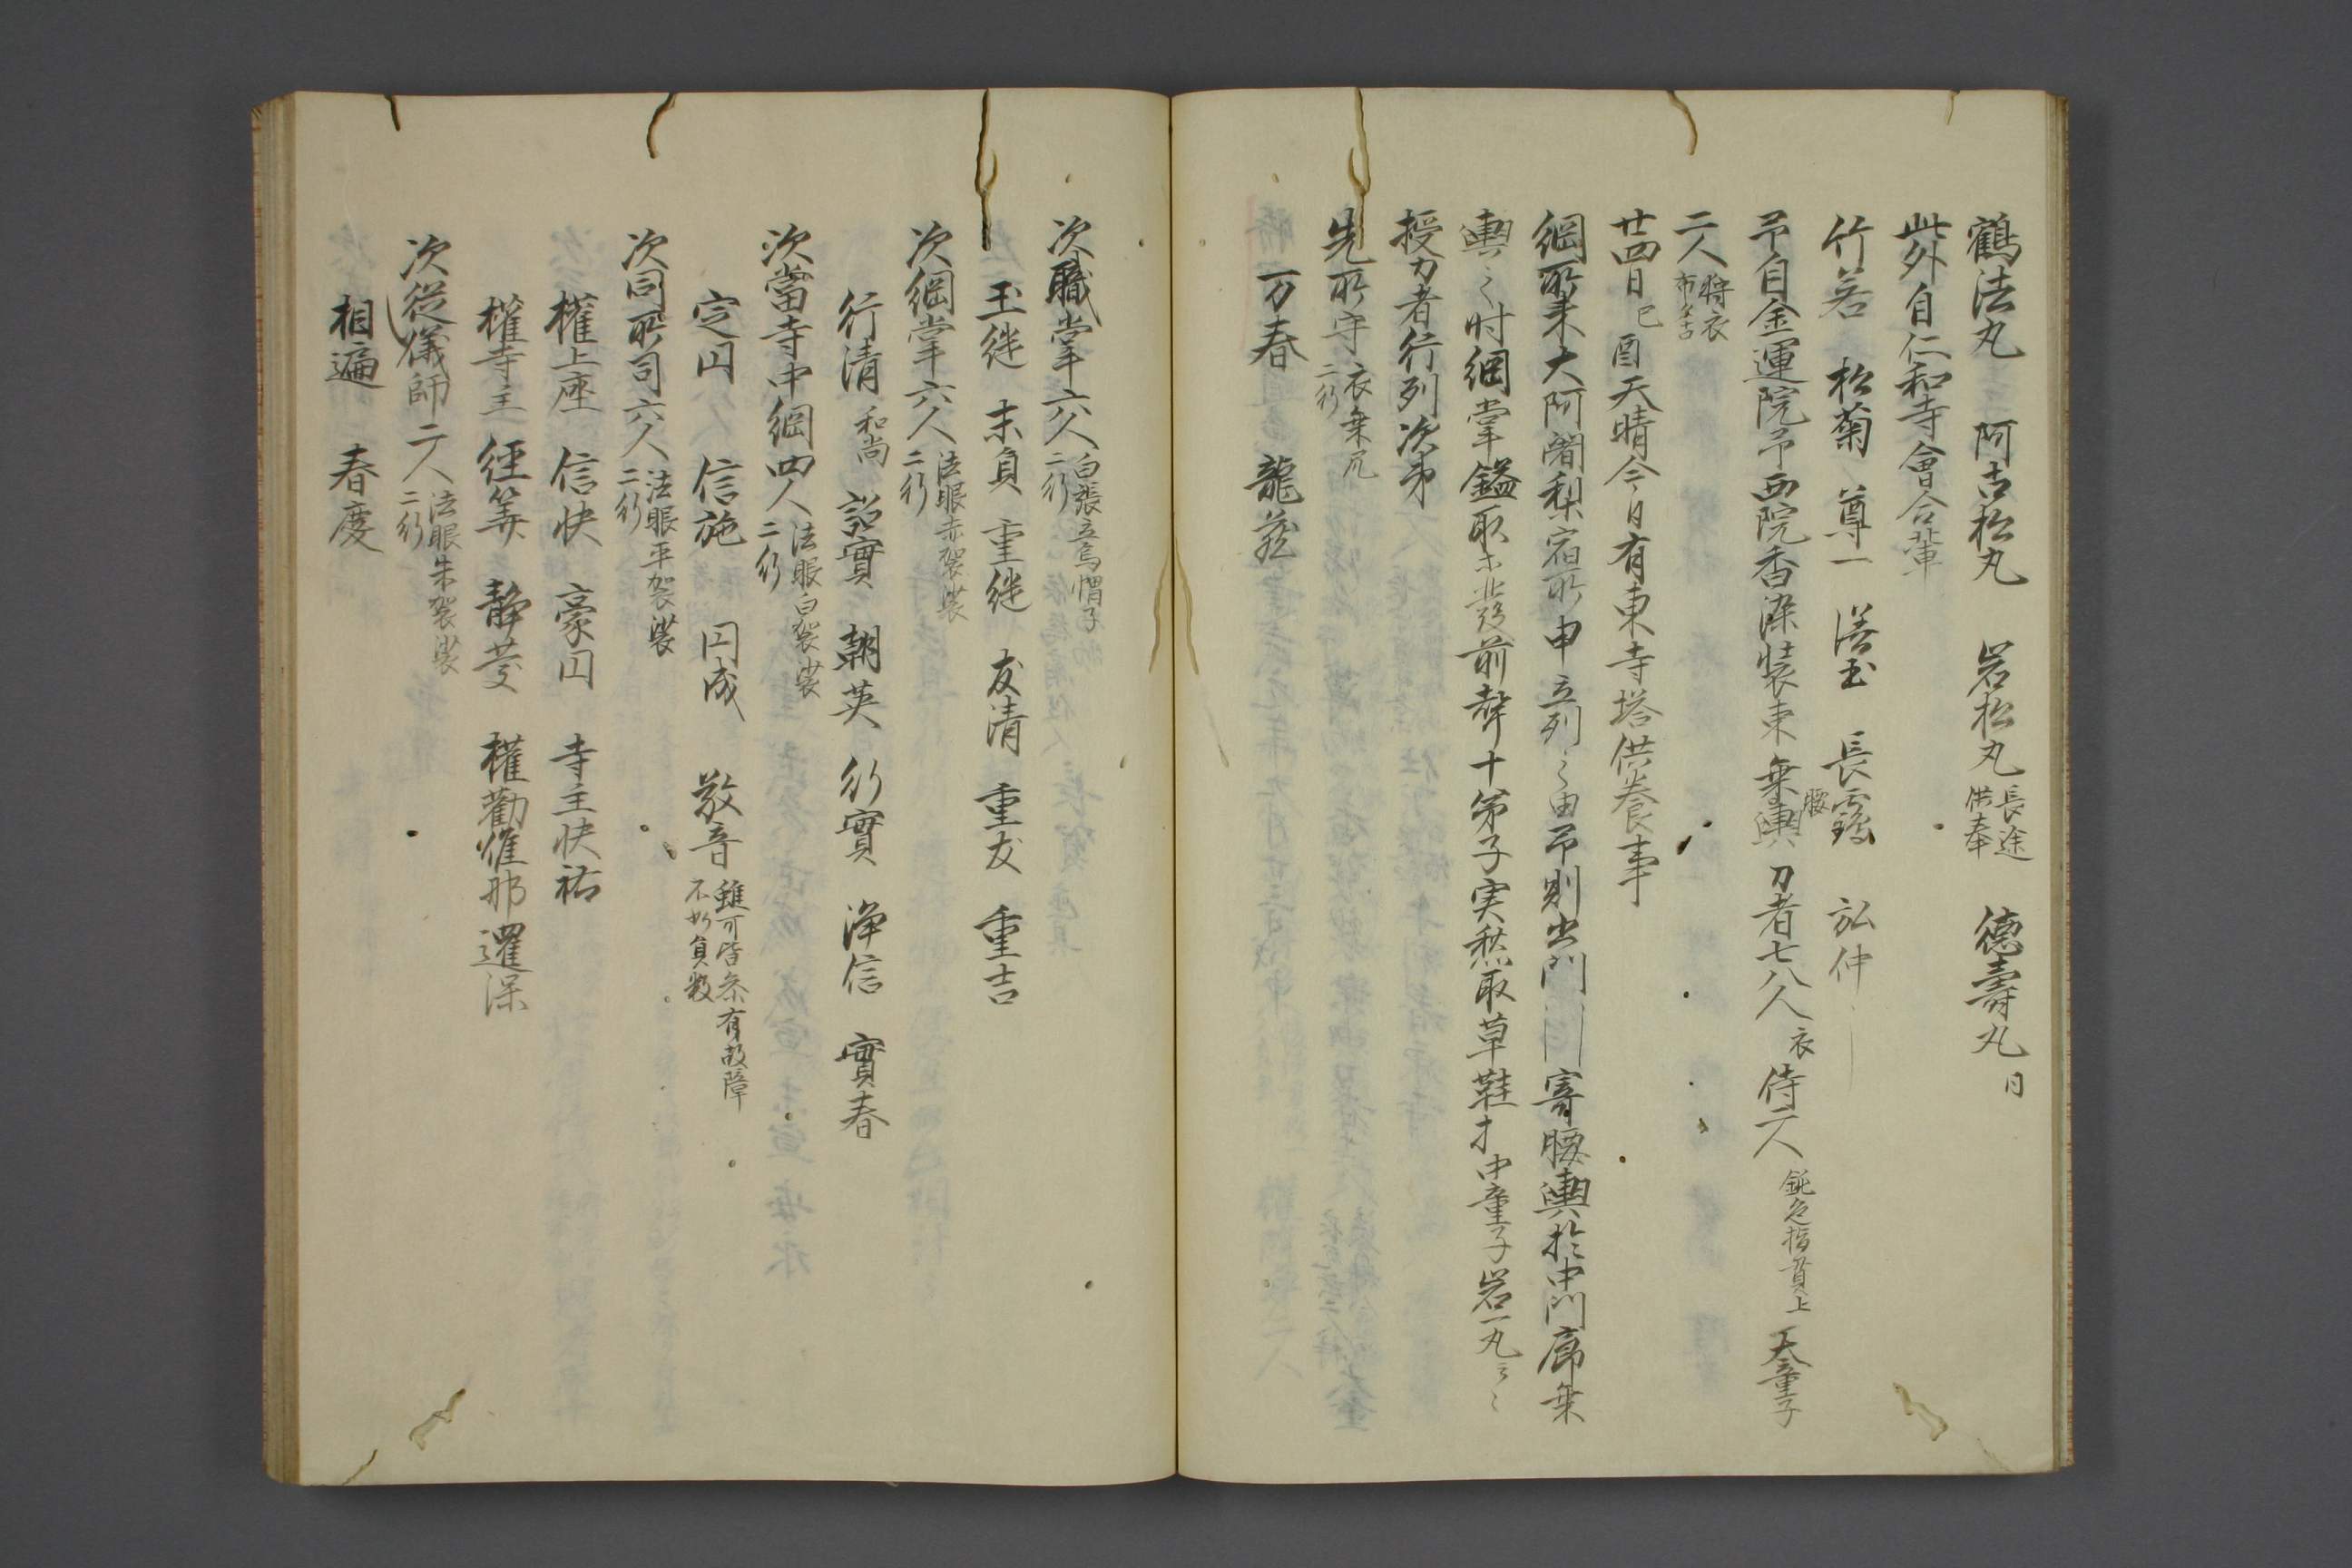 鶴法丸 阿古松丸 岩松丸 長途供奉 徳壽丸 同
此外自仁和寺會合輩
竹若 松菊 尊一 長靏 弘仲
予自金運院予西院香染装束乗腰輿力者七八人衣侍二人 鈍色指貫上 大童子
二人 狩衣
廿四日 己酉 天晴今日有東寺塔供養事
綱所来大阿闍梨宿所申立列之由予則出門 寄腰輿於中門廊乗
輿之時綱掌鎰取未發前聲十弟子実 取草鞋才中童子岩一丸云々
授力者行列次第
先所守 二行
万春 龍蔵
次職掌六人 白張立烏帽子 二行
玉継 末貞 重継 友清 重友 重吉
次綱掌六人 法眼赤袈裟 二行
行清 和尚 詔實 朝英 行實 浄信 實春
次當寺中綱四人 法眼白袈裟 二行
定円 信施 円成 敬音 雖可皆参有故障 不如員数
次同所司六人 法眼平袈裟 二行
權上座 信快 豪円 寺主快祐
權寺主 經筭 静慶 權勸維那暹深
次從儀師二人 法眼朱袈裟 二行
相遍 春慶